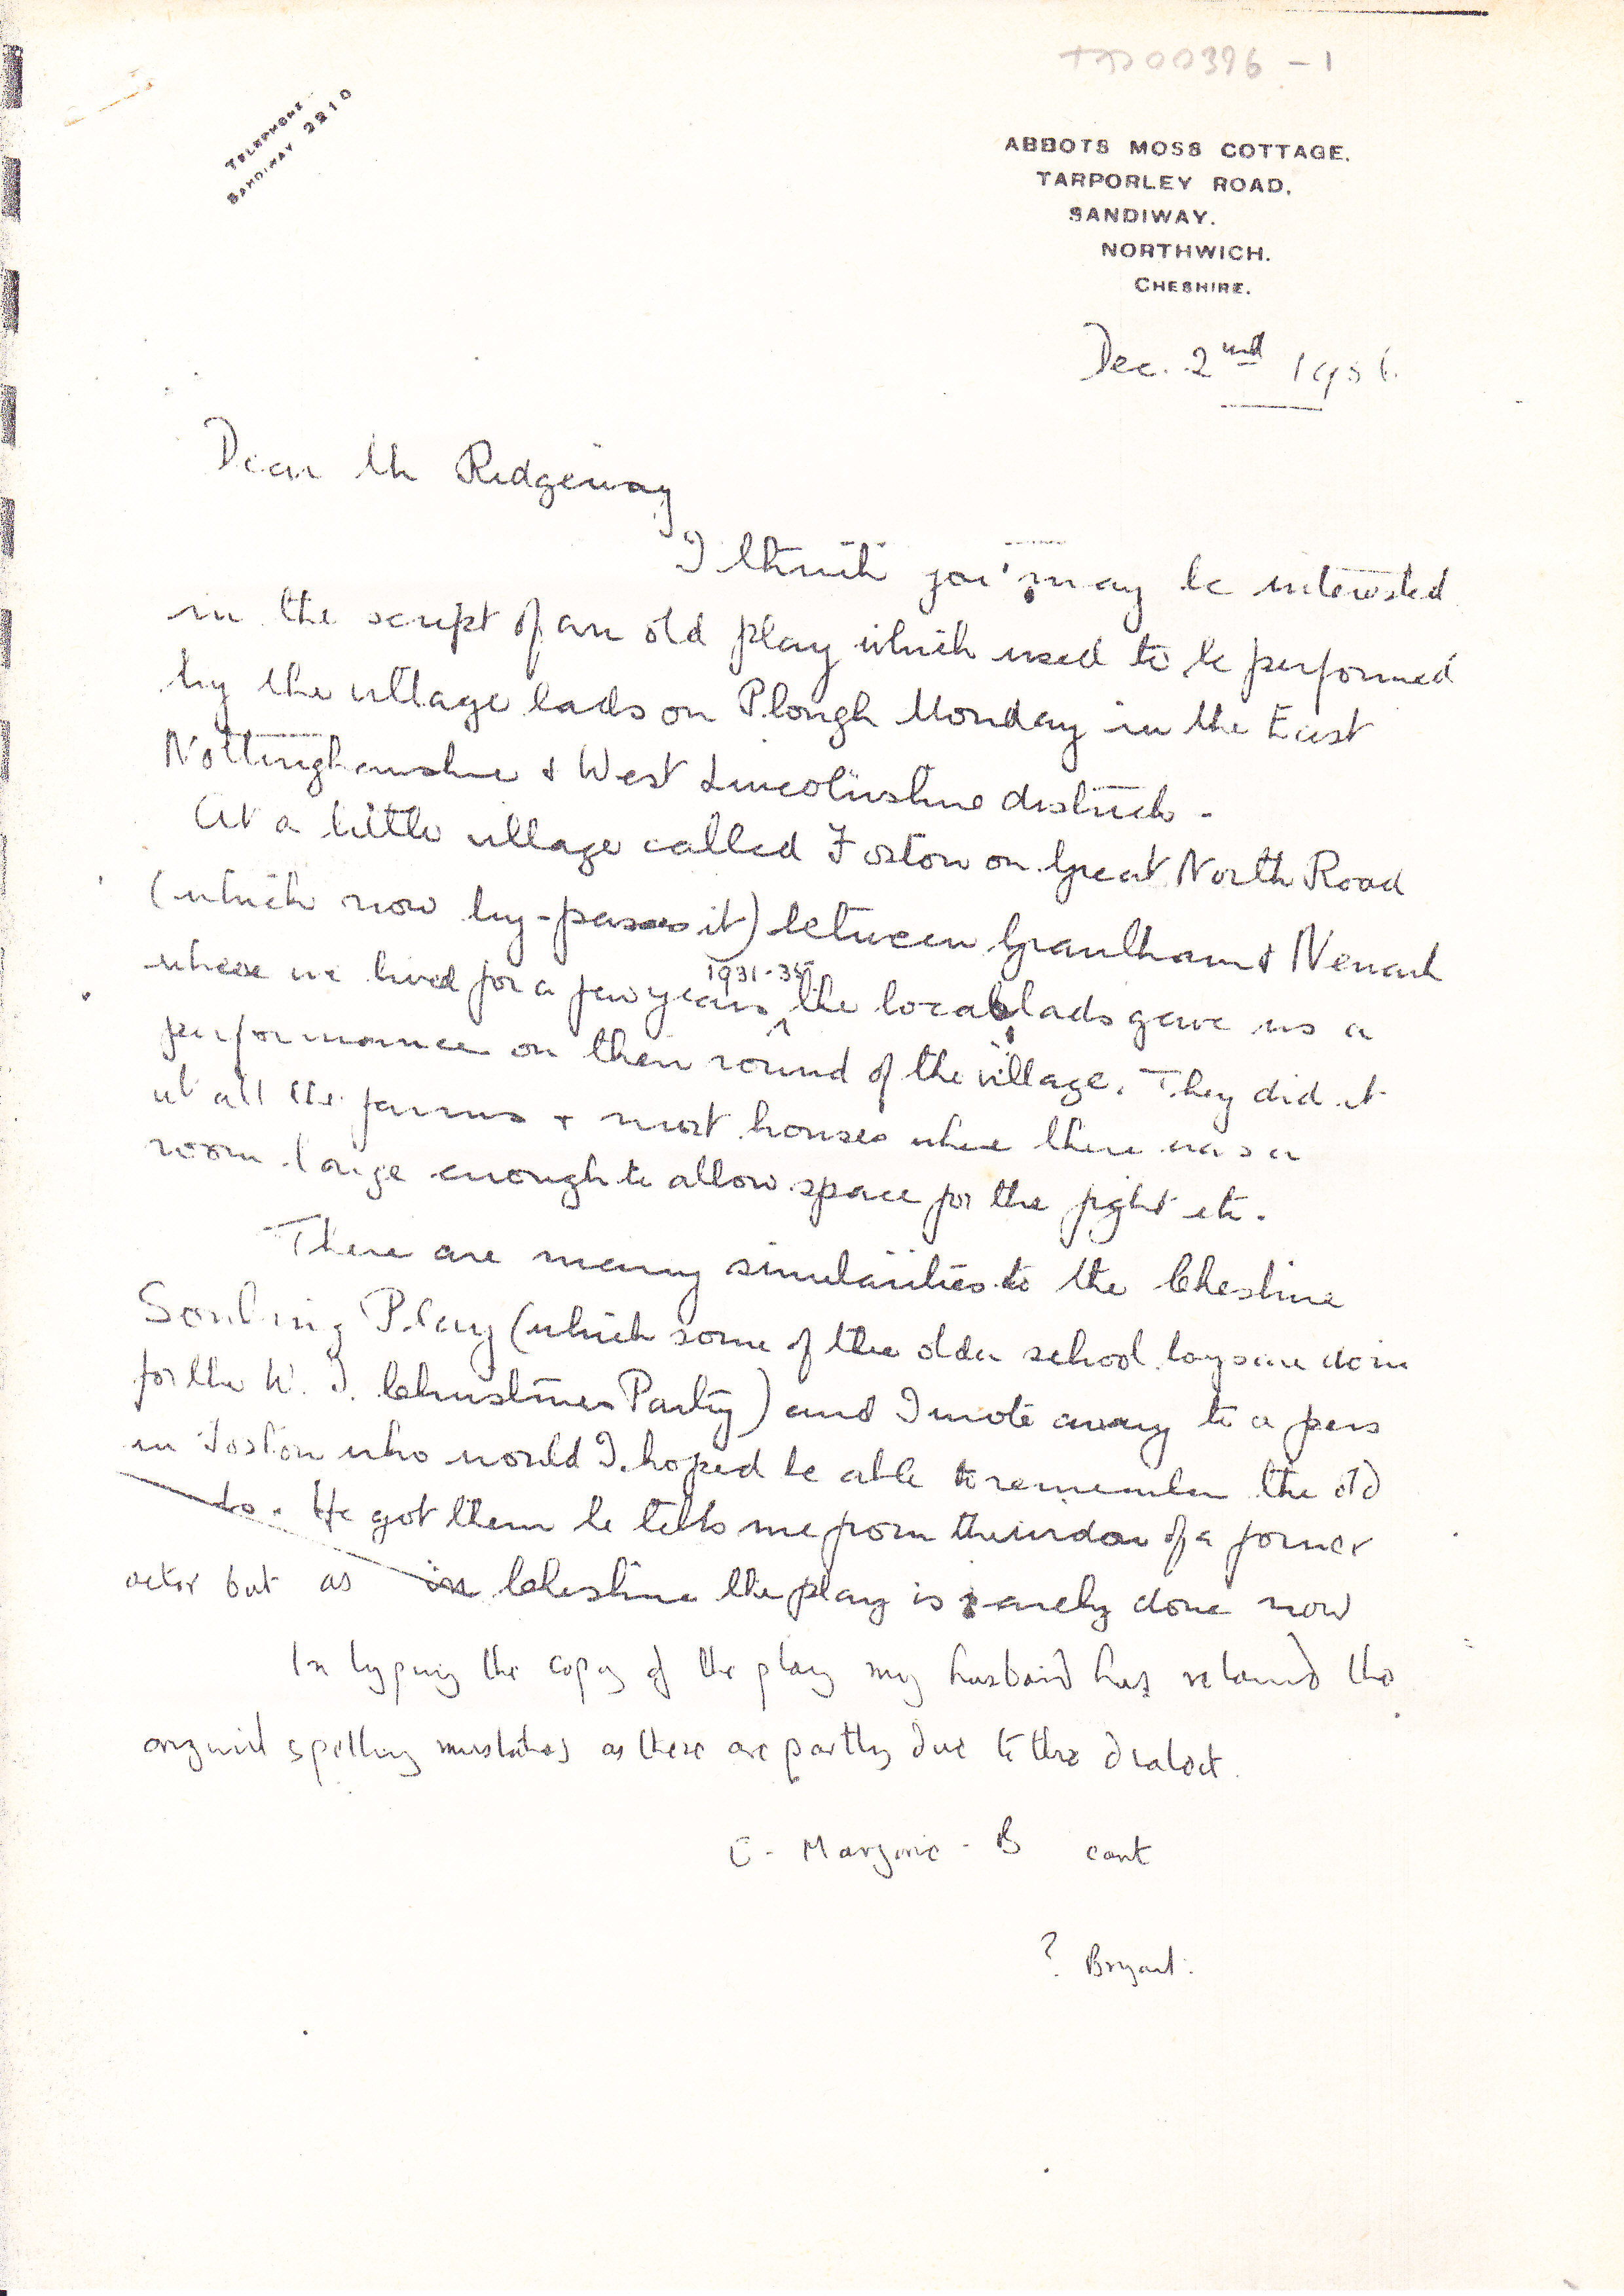 TD00396 - 1
TELEPHONE
SANDIWAY 2210
ABBOTS MOSS COTTAGE.
TARPORLEY ROAD,
SANDIWAY.
NORTHWICH.
CHESHIRE.
Dec. 2nd 1956
Dear Mr Ridgeway
I think you may be interested
in the script of an old play which used to be performed
by the village lads on Plough Monday in the East
Nottinghamshire & West Lincolnshire districts -
At a little village called Foston on Great North Road
(which now by-passes it) between Grantham & Newark
where we lived for a few years 1931-35 the local lads gave us a
performance on their round of the village. They did it
at all the farms & most houses where there was a
room large enough to allow space for the fight etc.
There are many similarities to the Cheshire
Souling Play (which some of the older school boys are doing
for the W. I. Christmas Party) and I wrote away to a pers
in Foston who would I hoped be able to remember the old
ds. He got them he tells me from the widow of a former
actor but as in Cheshire the play is rarely done now
In typing the copy of the play my husband has retained the
original spelling mistakes as these are partly due to the dialect.
C - Marjorie - B cant
? Bryant.